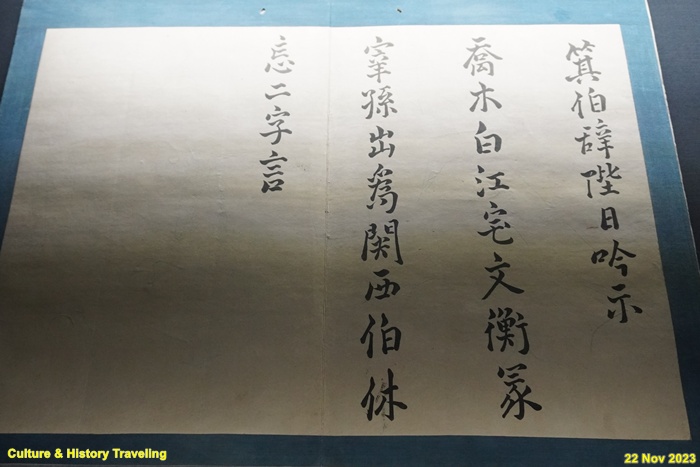 箕伯辞陛日吟示
喬木白江宅文衡冢
宰孫出爲関西伯休
忘二字言
Culture & History Traveling
22 Nov 2023